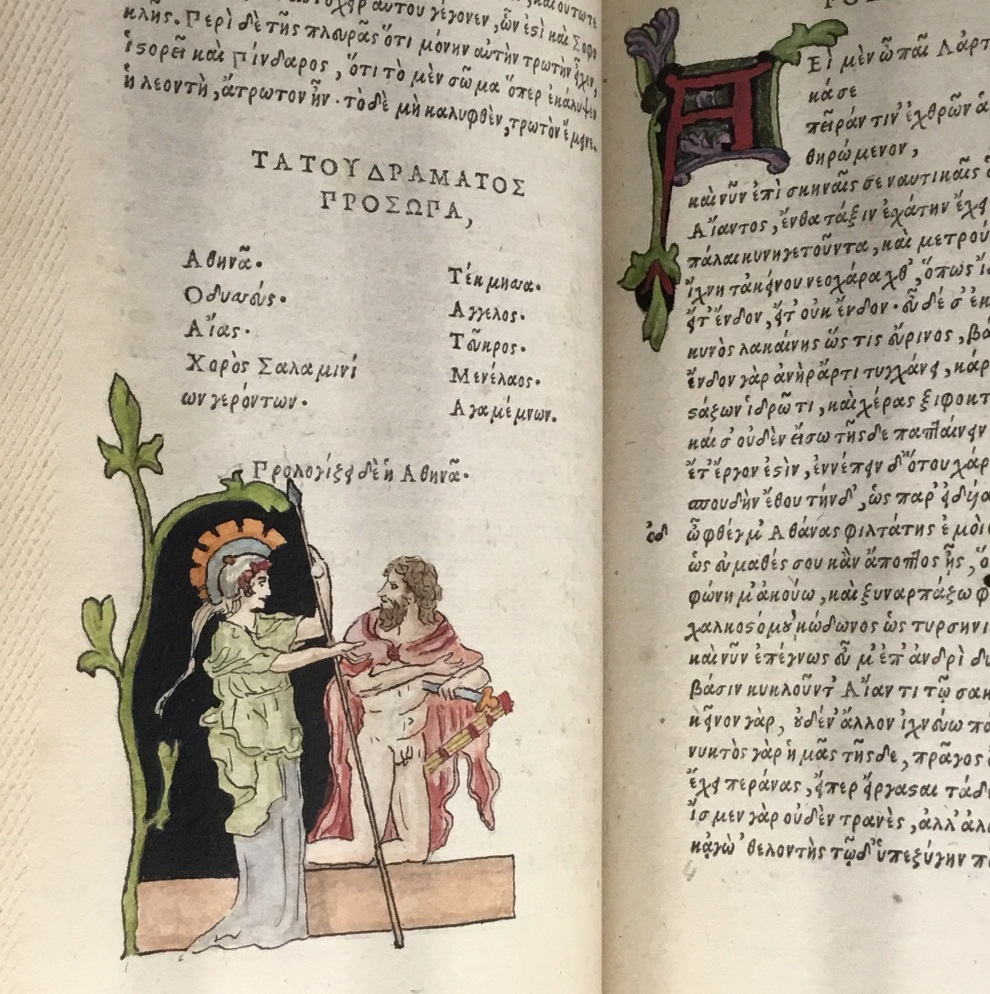 αὐτόχειρ αὐτοῦ γέγονεν, ὧν ἐςὶ καὶ Σοφο
κλῆς. Περὶ δὲ τῆς πλευρᾶς ὅτι μόνην αὐτὴν τρωτὴν εἶχεν,
ἱςορεῖ καὶ Πίνδαρος, ὅτι τὸ μὲν σῶμα ὅπερ ἐκάλυψεν
ἡ λεοντῆ, ἄτρωτον ἦν· τὸ δὲ μὴ καλυφθὲν, τρωτὸν ἔμεινε.
ΤΑ ΤΟΥ ΔΡΑΜΑΤΟΣ
ΠΡΟΣΩΠΑ,
Αθηνᾶ.
Οδυσσεύς.
Αἴας.
Χορὸς Σαλαμινί
ων γερόντων.
Τέκμησσα.
Αγγελος.
Τεῦκρος.
Μενέλαος.
Αγαμέμνων.
Προλογίζει δὲ ἡ Αθηνᾶ.
Εὶ μὲν ὦ παῖ Λάρτ
κά σε
πεῖράν τιν' ἐχθρῶν ἁ
θηρώμενον,
καὶ νῦν ἐπὶ σκηναῖς σε ναυτικαῖς ὁ
Αἴαντος, ἔνθα τάξιν ἐχάτην ἔχει
πάλαι κυνηγετοῦντα, καὶ μετρού
ἴχνη τὰ κείνου νεοχάραχθ', ὅπως ἴδ
εἴτ' ἔνδον, εἴτ' οὐκ ἔνδον· εὖ δέ σ' ἐκ
κυνὸς λακαίνης ὥς τις εὔρινος, βά
ἔνδον γὰρ ἀνὴρ ἄρτι τυγχάνει, κάρ
ςάζων ἱδρῶτι, καὶ χέρας ξιφοκτ
καί σ' οὐδὲν εἴσω τῆσδε παπταίνειν
ἔτ' ἔργον ἐςὶν, ἐννέπειν δ' ὅτου χάρ
σπουδὴν ἔθου τήνδ', ὡς παρ' εἰδυία
ὀδ ὦ φθέγμ' Αθάνας φιλτάτης ἐμοὶ
ὡς εὐμαθές σου κἂν ἄποπτος ᾖς, ὅ
φώνημ' ἀκούω, καὶ ξυναρπάζω φ
χαλκοςόμου κώδωνος ὡς τυρσηνι
καὶ νῦν ἐπέγνως εὖ μ' ἐπ' ἀνδρὶ δυ
βάσιν κυκλοῦντ' Αἴαντι τῷ σακ
κεῖνον γὰρ, οὐδέν' ἄλλον ἰχνεύω πά
νυκτὸς γὰρ ἡμᾶς τῆσδε, πρᾶγος
ἔχει περάνας, εἴπερ εἴργαςαι τάδ
ἴσμεν γὰρ οὐδὲν τρανὲς, ἀλλ' ἀλ
κᾀγὼ 'θελοντὴς τῷδ' ὑπεζύγην π